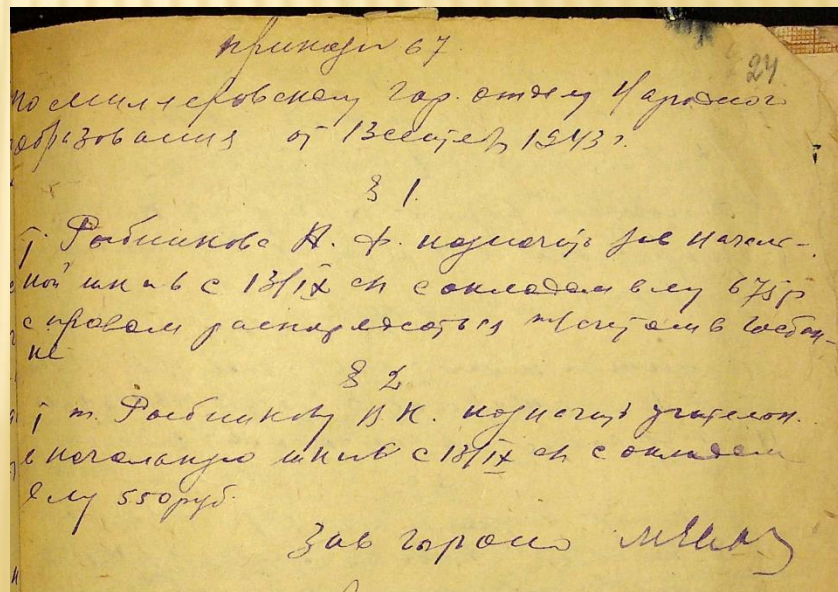 Приказ 67
24
по Миллеровскому Гор. отделу Народного
образования от 13 сентяб 1943 г.
§ 1.
т. Рыбникова Н. Ф. назначить зав Началь-
ной шк № 6 с 13/IX сг с окладом ему 675 р
с правом распоряжаться р/счетом в Госбан-
ке
§ 2
т. Рыбникову В К. назначить учителем
в начальную шк № 6 с 13/IX сг с окладом
ему 550 руб.
Зав гороно